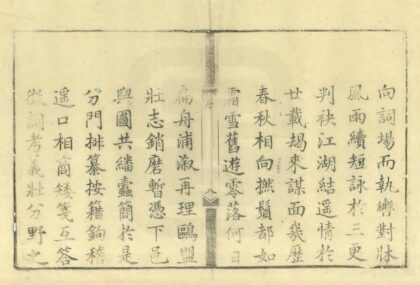 向詞場而執轡對牀
風雨續短詠於三更
判袂江湖結遥情於
廿載朅來謀面幾歷
春秋相向撚鬚都如
霜雪舊遊零落何日
序
八
扁舟浦溆再理鷗盟
壯志銷磨暫憑下邑
輿圖共繙蠹簡於是
分門排纂按籍鉤稽
遥口相商矮箋互答
微詞考義壯分野之